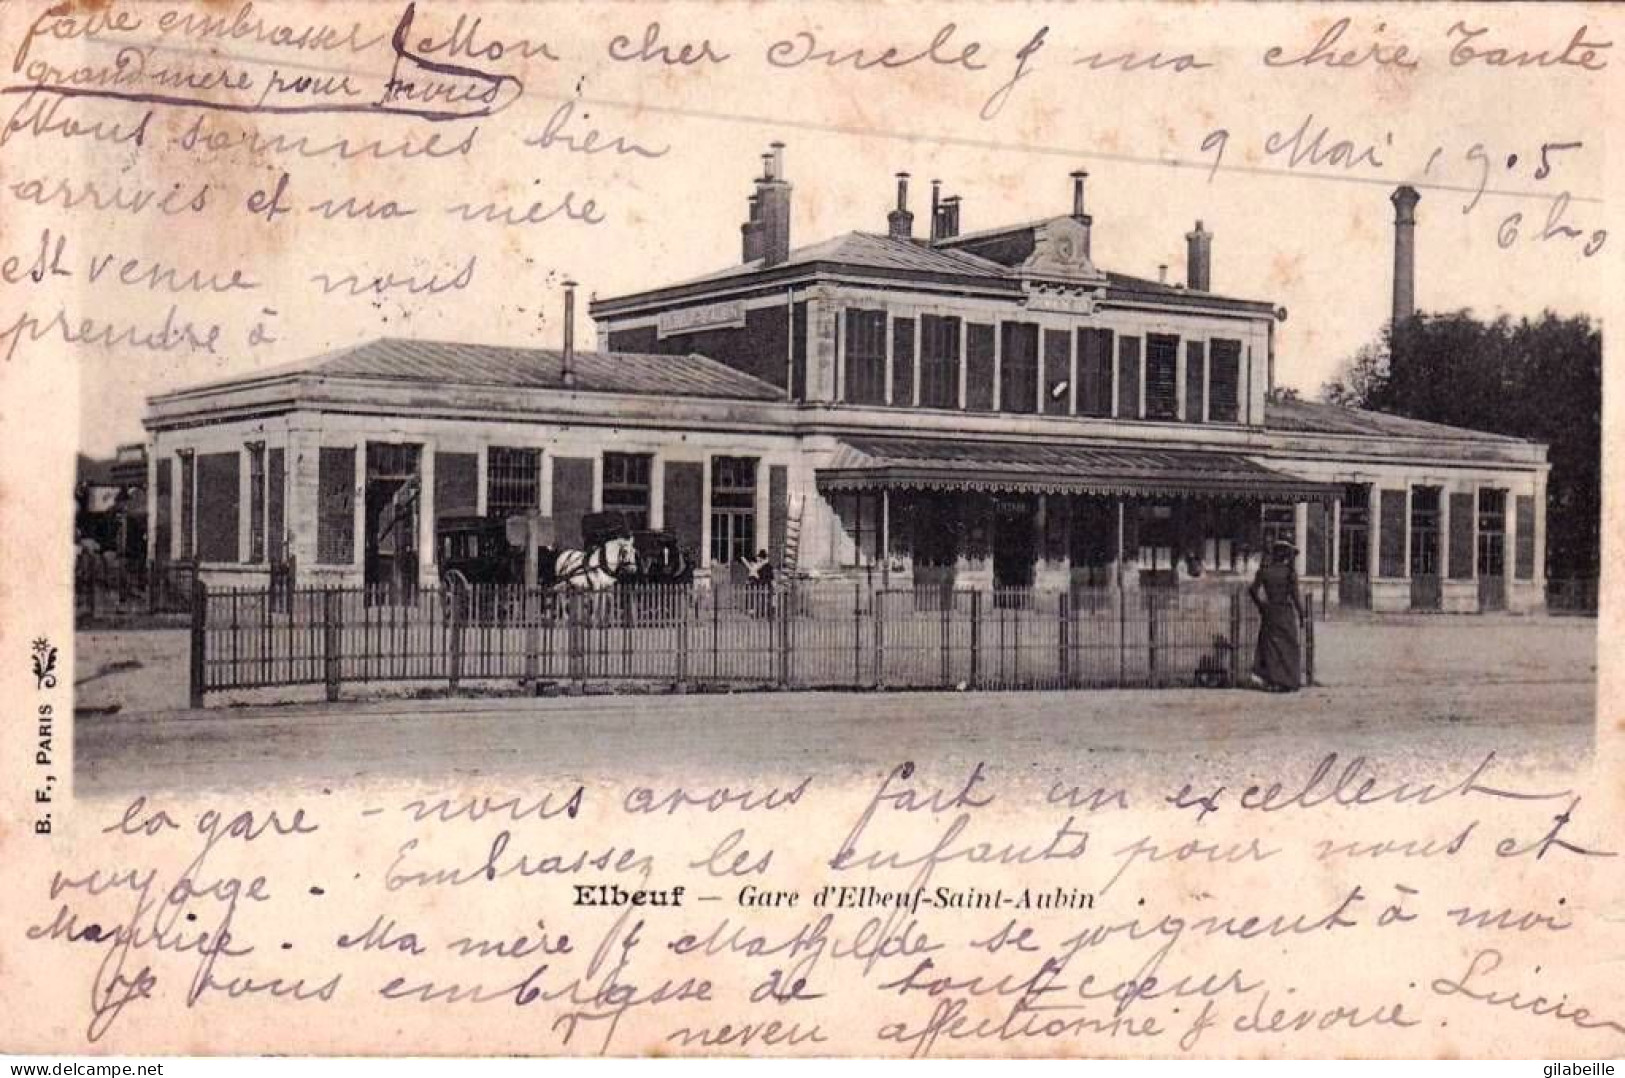 faire embrasser
grand'mère pour nous
Mon cher Oncle & ma chère Tante
9 Mai 1905
6h
Nous sommes bien
arrivés et ma mère
est venue nous
prendre à
la gare - nous avons fait un excellent
voyage - Embrassez les enfants pour nous et
Maurice - Ma mère & Mathilde se joignent à moi
je vous embrasse de tout cœur.
neveu affectionné & dévoué.
Lucien
Elbeuf — Gare d'Elbeuf-Saint-Aubin
B. F., PARIS
delcampe.net
gilabeille